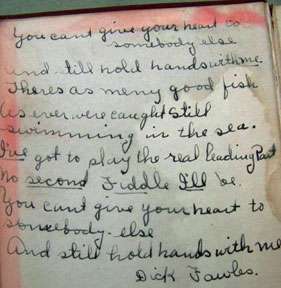 You cant give your heart to
somebody else
and still hold hands with me.
Theres as meny good fish
As ever were caught still
swimming in the sea.
I've got to play the real leading Part
No second Fiddle I'll be.
You cant give your heart to
somebody. else
And still hold hands with me
Dick Fawles.